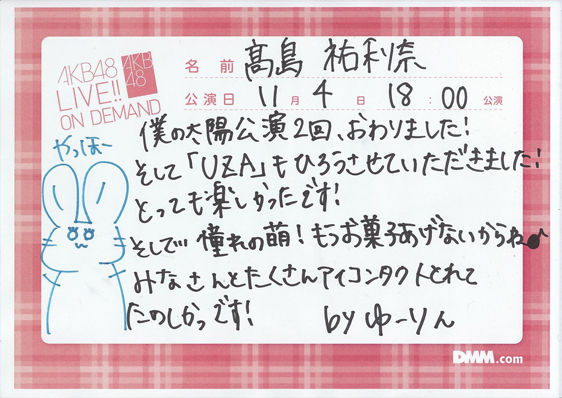 AKB48
LIVE!!
ON DEMAND
AKB
48
名前 髙島 祐利奈
公演日 11月4日 18:00公演
やっほー
僕の太陽公演2回、おわりました!
そして「UZA」もひろうさせていただきました!
とっても楽しかったです!
そして 憧れの萌!もうお菓子あげないからね♪
みなさんとたくさんアイコンタクトとれて
たのしかっです!
by ゆーりん
DMM.com